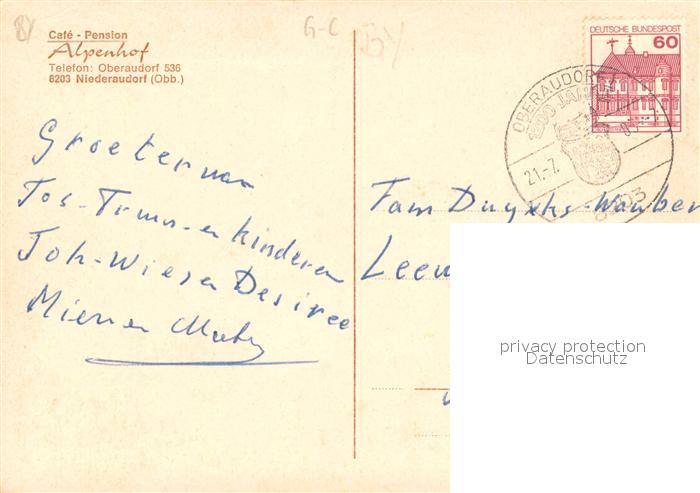 Café - Pension
Alpenhof
Telefon: Oberaudorf 536
8203 Niederaudorf (Obb.)
BY
G-C
BY
DEUTSCHE BUNDESPOST
60
OBERAUDORF
JAHRE
21.-7.
8203
Groeten van
Jos-Truus-en kinderen
Joh-Wies en Desiree
Mien en
Fam Duyxhs-Wauben
Leeu
privacy protection
Datenschutz